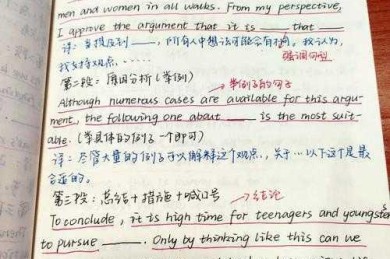 men and women in all walks. From my perspective,
I approve the argument that it is ___ that
译: 当提及到 ___, 所有人中想法可能会有不同. 我认为,
强调句型
我支持观点......
第二段: 原因分析 (举例) 举例子的句子
Although numerous cases are available for this argu-
ment, the following one about ___ is the most suit-
able. (举具体的例子 一个即可)
译: 尽管大量的例子可以解释这个观点, 关于...以下这个是最
合适的.
第三段: 总结+措施+喊口号 结论
To conclude, it is high time for teenagers and youngsters
to pursue ___. Only by thinking like this can we